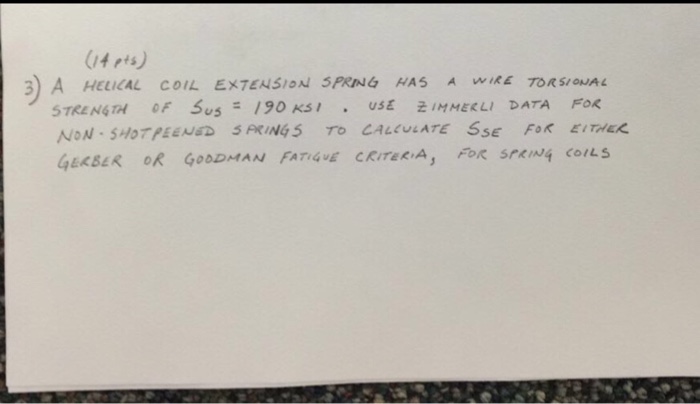 (14 pts)
3) A HELICAL COIL EXTENSION SPRING HAS A WIRE TORSIONAL
STRENGTH OF Sus = 190 KSI . USE ZIMMERLI DATA FOR
NON-SHOTPEENED SPRINGS TO CALCULATE SSE FOR EITHER
GERBER OR GOODMAN FATIGUE CRITERIA, FOR SPRING COILS